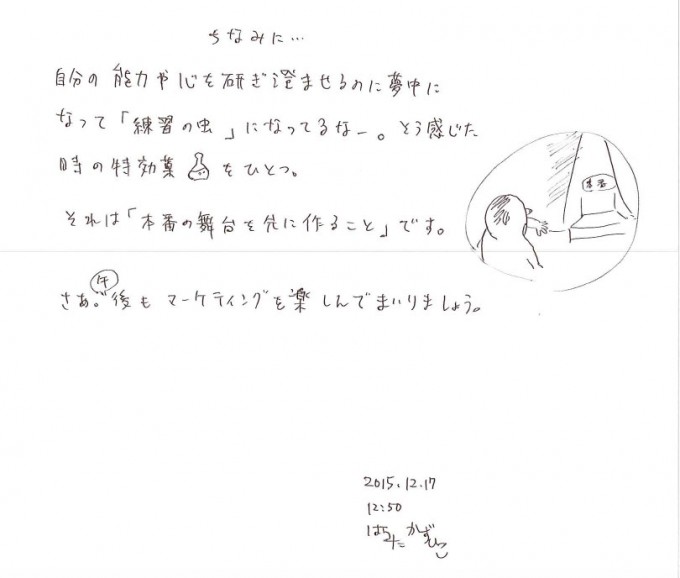 ちなみに…
自分の能力や心を研ぎ澄ませるのに夢中に
なって「練習の虫」になってるなー。そう感じた
時の特効薬をひとつ。
本番
それは「本番の舞台を先に作ること」です。
さあ。午後もマーケティングを楽しんでまいりましょう。
2015.12.17
12:50
はらだ かずひこ